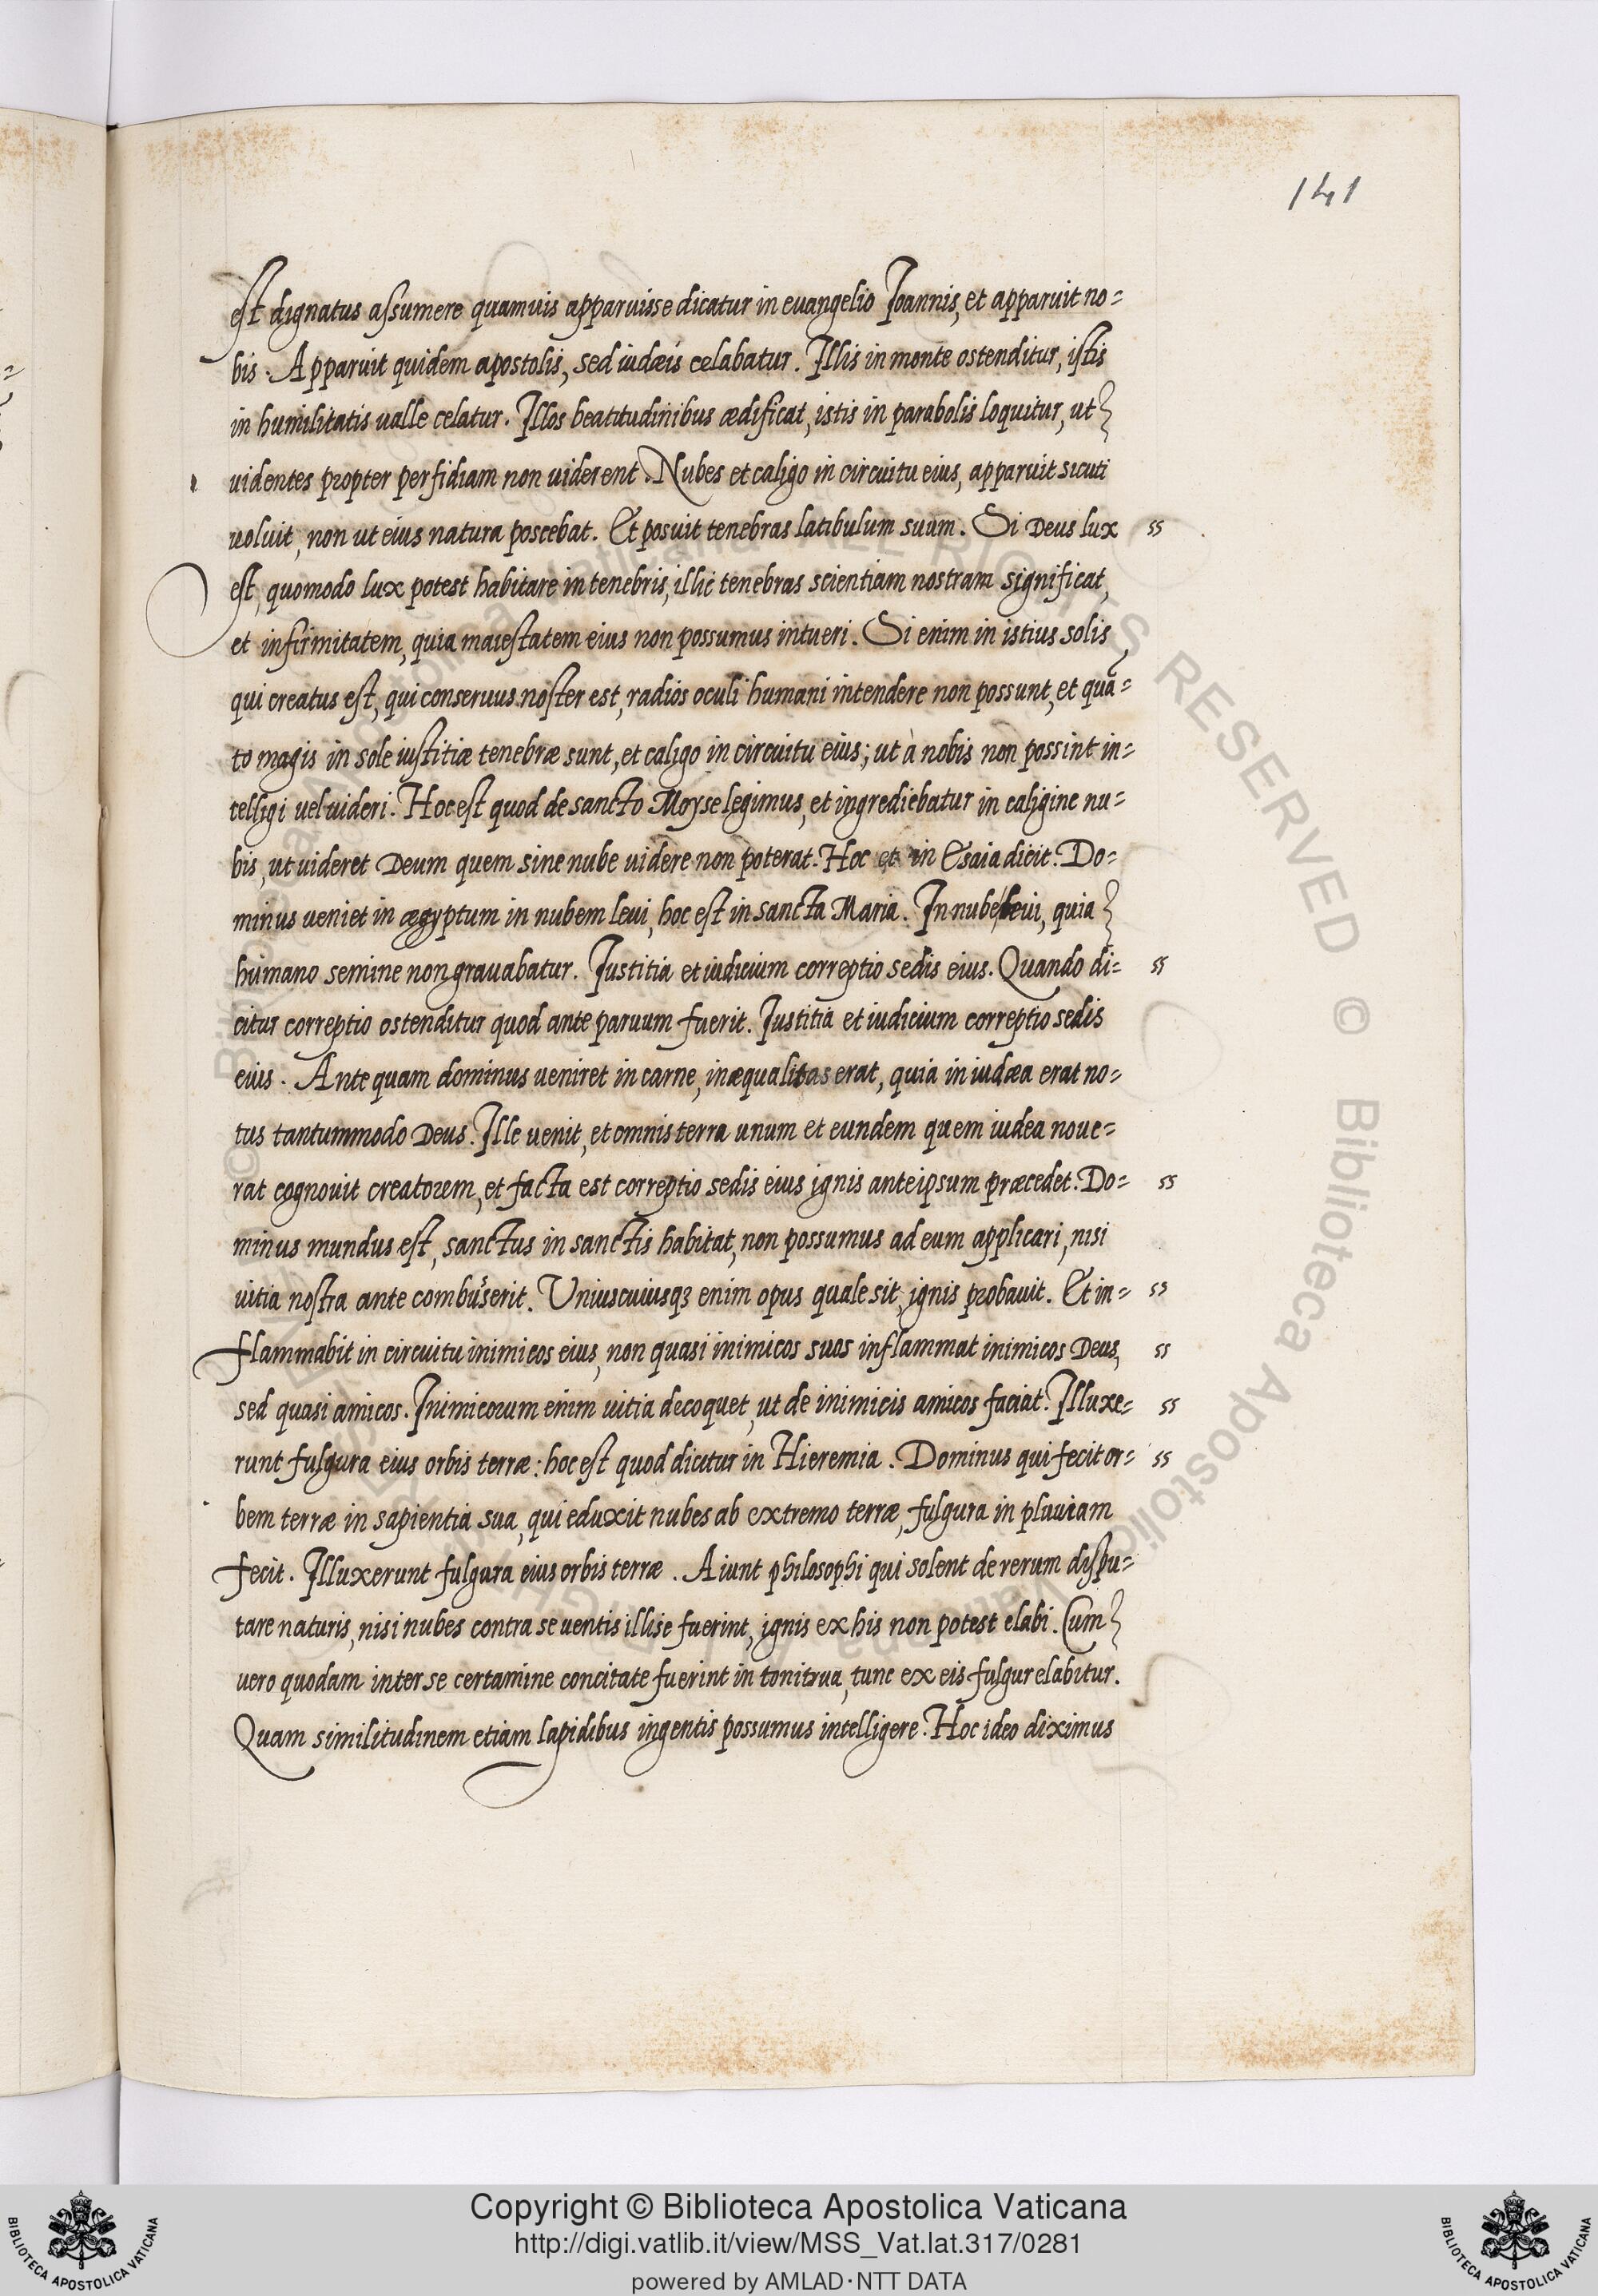 141
est dignatus assumere quamuis apparuisse dicatur in euangelio Ioannis, et apparuit no=
bis. Apparuit quidem apostolis, sed iudæis celabatur. Illis in monte ostenditur, istis
in humilitatis ualle celatur. Illos beatitudinibus ædificat, istis in parabolis loquitur, ut
uidentes propter perfidiam non uiderent. Nubes et caligo in circuitu eius, apparuit sicuti
uoluit, non ut eius natura poscebat. Et posuit tenebras latibulum suum. Si Deus lux
est, quomodo lux potest habitare in tenebris, illic tenebras scientiam nostram significat,
et infirmitatem, quia maiestatem eius non possumus intueri. Si enim in istius solis
qui creatus est, qui conseruus noster est, radios oculi humani intendere non possunt, et quā=
to magis in sole iustitiæ tenebræ sunt, et caligo in circuitu eius; ut à nobis non possint in=
telligi uel uideri. Hoc est quod de sancto Moyse legimus, et ingrediebatur in caligine nu=
bis, ut uideret Deum quem sine nube uidere non poterat. Hoc et in Esaia dicit. Do=
minus ueniet in ægyptum in nubem leui, hoc est in sancta Maria. In nube leui, quia
humano semine non grauabatur. Iustitia et iudicium correptio sedis eius. Quando di=
citur correptio ostenditur quod ante paruum fuerit. Iustitia et iudicium correptio sedis
eius. Ante quam dominus ueniret in carne, inæqualitas erat, quia in iudæa erat no=
tus tantummodo Deus. Ille uenit, et omnis terra unum et eundem quem iudea noue=
rat cognouit creatorem, et facta est correptio sedis eius ignis ante ipsum præcedet. Do=
minus mundus est, sanctus in sanctis habitat, non possumus ad eum applicari, nisi
uitia nostra ante combuserit. Uniuscuiusqȝ enim opus quale sit, ignis probauit. Et in=
flammabit in circuitu inimicos eius, non quasi inimicos suos inflammat inimicos Deus,
sed quasi amicos. Inimicorum enim uitia decoquet, ut de inimicis amicos faciat. Illuxe=
runt fulgura eius orbis terræ: hoc est quod dicitur in Hieremia. Dominus qui fecit or=
bem terræ in sapientia sua, qui eduxit nubes ab extremo terræ, fulgura in pluuiam
fecit. Illuxerunt fulgura eius orbis terræ. Aiunt philosophi qui solent de rerum dispu=
tare naturis, nisi nubes contra se uentis illise fuerint, ignis ex his non potest elabi. Cum
uero quodam inter se certamine concitate fuerint in tonitrua, tunc ex eis fulgur elabitur.
Quam similitudinem etiam lapidibus ingentis possumus intelligere. Hoc ideo diximus
© Biblioteca Apostolica Vaticana ALL RIGHTS RESERVED
Copyright © Biblioteca Apostolica Vaticana
http://digi.vatlib.it/view/MSS_Vat.lat.317/0281
powered by AMLAD·NTT DATA
BIBLIOTECA APOSTOLICA VATICANA
BIBLIOTECA APOSTOLICA VATICANA